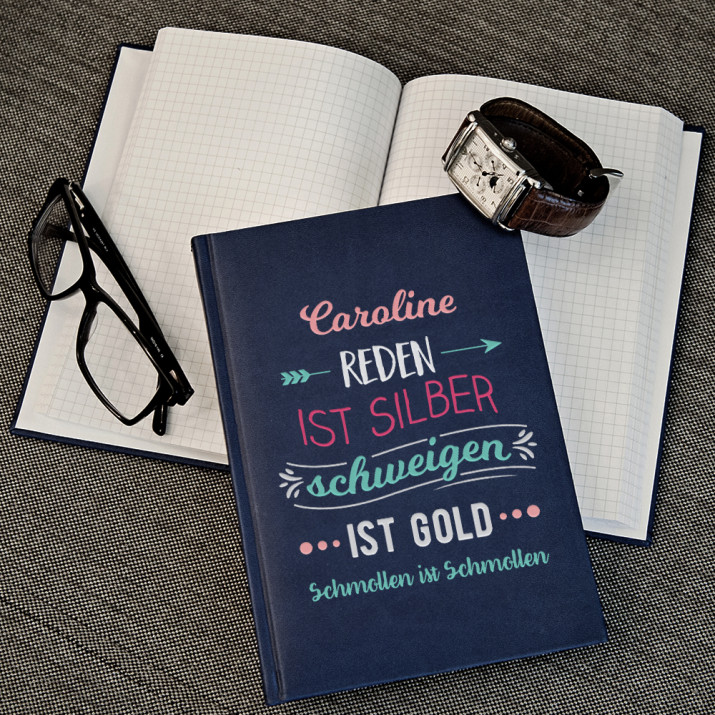 Caroline
REDEN
IST SILBER
schweigen
IST GOLD
Schmollen ist Schmollen